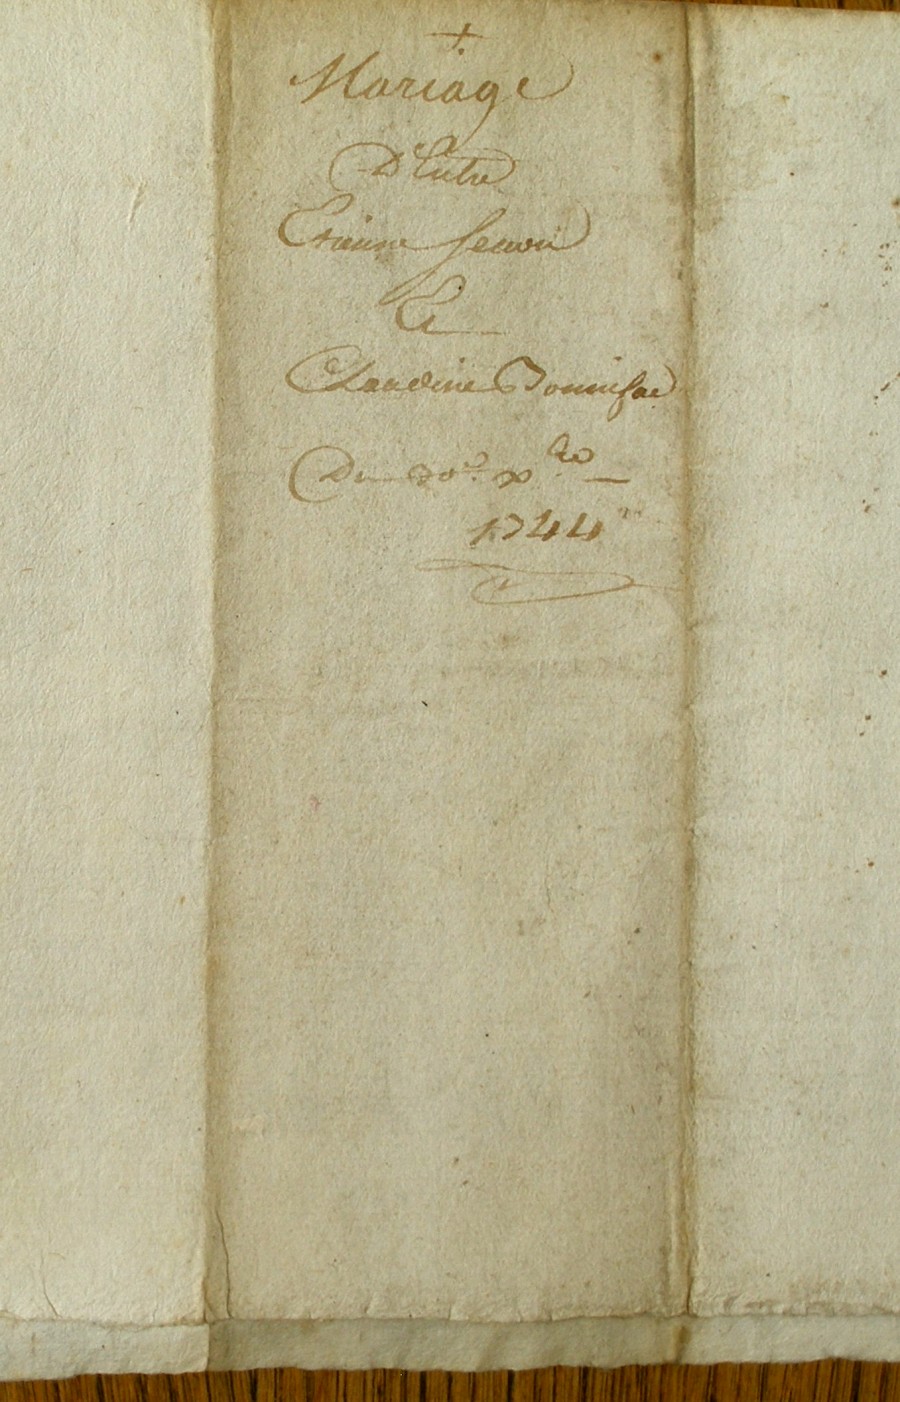 +
Mariage
D'Entre
Etienne Senon
Et
Claudine Bonnifac
Du 30e. xbre
1744